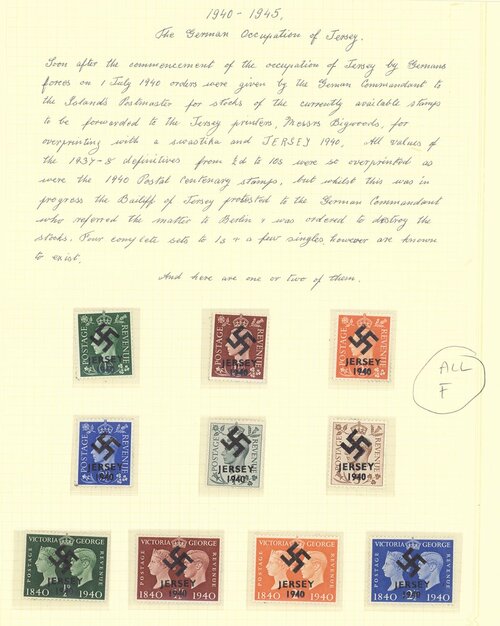 1940 - 1945.
The German Occupation of Jersey.
Soon after the commencement of the occupation of Jersey by Germans
forces on 1 July 1940 orders were given by the German Commandant to
the Islands Postmaster for stocks of the currently available stamps
to be forwarded to the Jersey printers, Messrs Bigwoods, for
overprinting with a swastika and JERSEY 1940. All values of
the 1937-8 definitives from ½d to 10s were so overprinted as
were the 1940 Postal Centenary stamps, but whilst this was in
progress the Bailiff of Jersey protested to the German Commandant
who referred the matter to Berlin & was ordered to destroy the
stocks. Four complete sets to 1s & a few singles however are known
to exist.
And here are one or two of them.
POSTAGE REVENUE JERSEY 1940
POSTAGE REVENUE JERSEY 1940
POSTAGE REVENUE JERSEY 1940
ALL
F
POSTAGE REVENUE JERSEY 1940
POSTAGE REVENUE JERSEY 1940
POSTAGE REVENUE JERSEY 1940
VICTORIA GEORGE POSTAGE REVENUE JERSEY 1840 1940 1940
VICTORIA GEORGE POSTAGE REVENUE JERSEY 1840 1940 1940
VICTORIA GEORGE POSTAGE REVENUE JERSEY 1840 1940 1940
VICTORIA GEORGE POSTAGE REVENUE JERSEY 1840 1940 1940